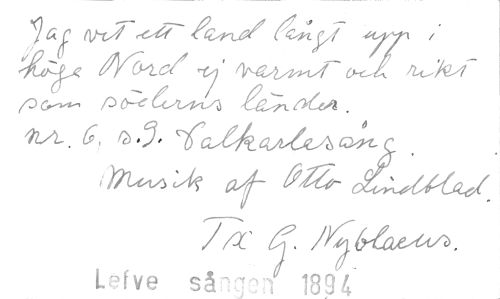 Jag vet ett land långt upp i
höga Nord ej varmt och rikt
som söderns länder.
nr. 6, s.9. Dalkarlasång.
Musik af Otto Lindblad.
Tx G. Nyblaeus.
Lefve sången 1894